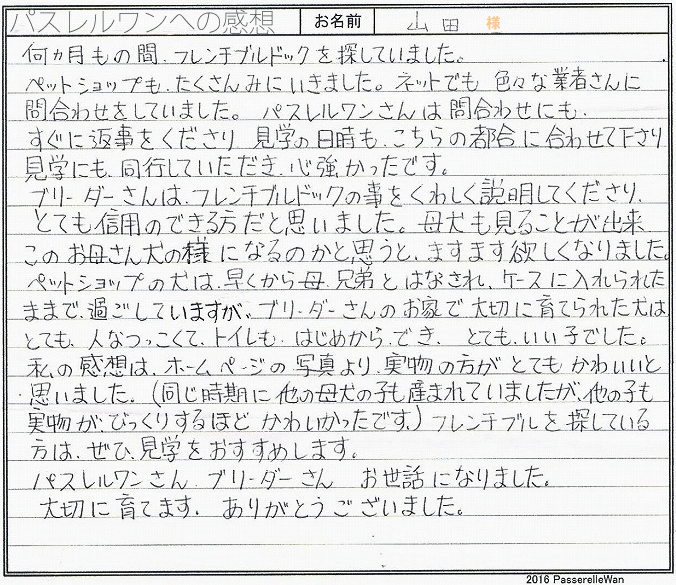 パスレルワンへの感想 お名前 山田 様
何ヵ月もの間、フレンチブルドックを探していました。
ペットショップも、たくさんみにいきました。ネットでも 色々な業者さんに
問合わせをしていました。 パスレルワンさんは問合わせにも、
すぐに返事をくださり 見学の日時も、こちらの都合に合わせて下さり
見学にも、同行していただき、心強かったです。
ブリーダーさんは、フレンチブルドックの事をくわしく説明してくださり、
とても信用のできる方だと思いました。母犬も見ることが出来
このお母さん犬の様になるのかと思うと、ますます欲しくなりました。
ペットショップの犬は、早くから母、兄弟とはなされ、ケースに入れられた
ままで、過ごしていますが、ブリーダーさんのお家で大切に育てられた犬は
とても、人なつっこくて、トイレも、はじめから、でき、 とても、いい子でした。
私の感想は、ホームページの写真より、実物の方がとてもかわいいと
思いました。(同じ時期に他の母犬の子も産まれていましたが、他の子も
実物が、びっくりするほど かわいかったです。) フレンチブルを探している
方は、ぜひ、見学をおすすめします。
パスレルワンさん ブリーダーさん お世話になりました。
大切に育てます。 ありがとうございました。
2016 PasserelleWan